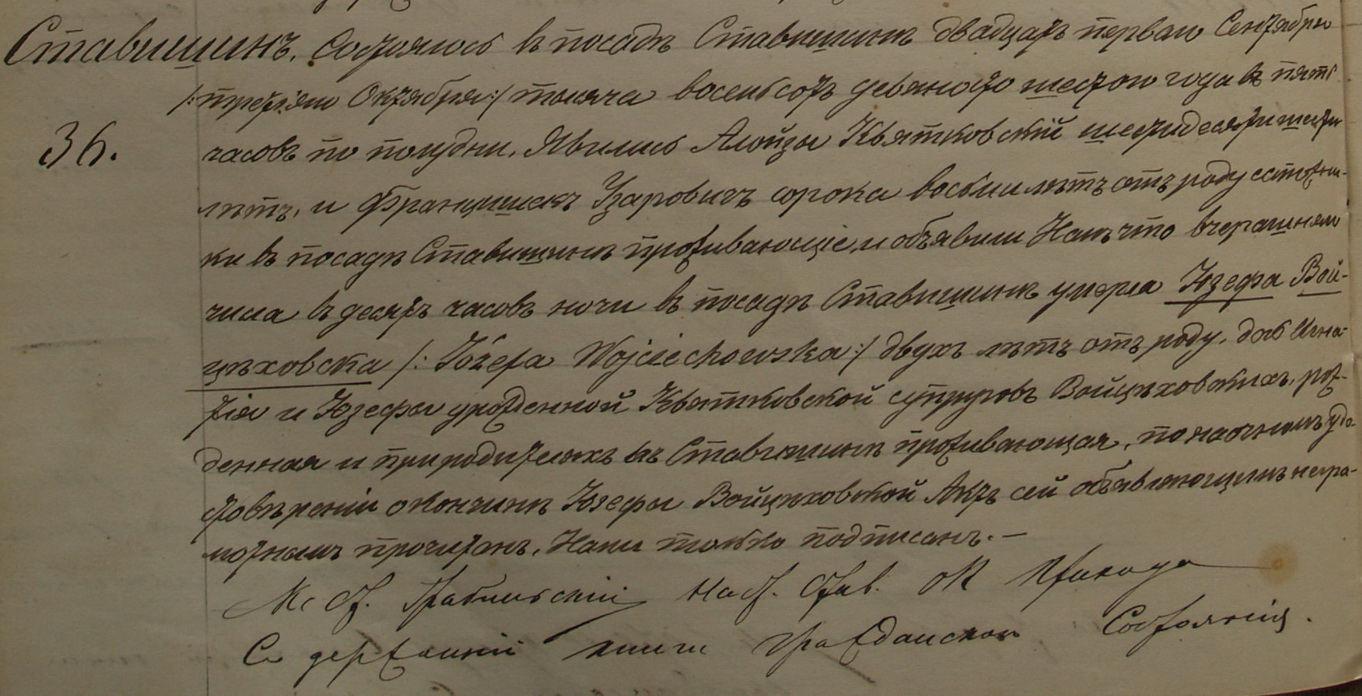 Ставишинъ. Состоялось въ посадѣ Ставишинѣ двадцать перваго Сентября
/:третьяго Октября:/ тысяча восемьсотъ девяносто шестого года въ пять
часовъ по полудни. Явились Алойзы Квятковскій шестидесяти шести
лѣтъ, и Францишекъ Узаровичъ сорока восьми лѣтъ отъ роду
ки въ посадѣ Ставишинѣ проживающіе, и объявили Намъ что вчерашняго
числа въ десять часовъ ночи въ посадѣ Ставишинѣ умерла Юзефа Вой-
цѣховска /: Józefa Wojciechowska:/ двухъ лѣтъ отъ роду, дочь Игна-
тія и Юзефы урожденной Квятковской супруговъ Войцѣховскихъ, рож-
денная и при родителяхъ въ Ставишинѣ проживающая, по наочномъ удо-
стовѣреніи о кончинѣ Юзефы Войцѣховской Актъ сей объявляющимъ негра-
мотнымъ прочитанъ, Нами только подписанъ. —
Кс. Наст. Став. Прихода
Содержащій книги Гражданскаго Состоянія.
36.